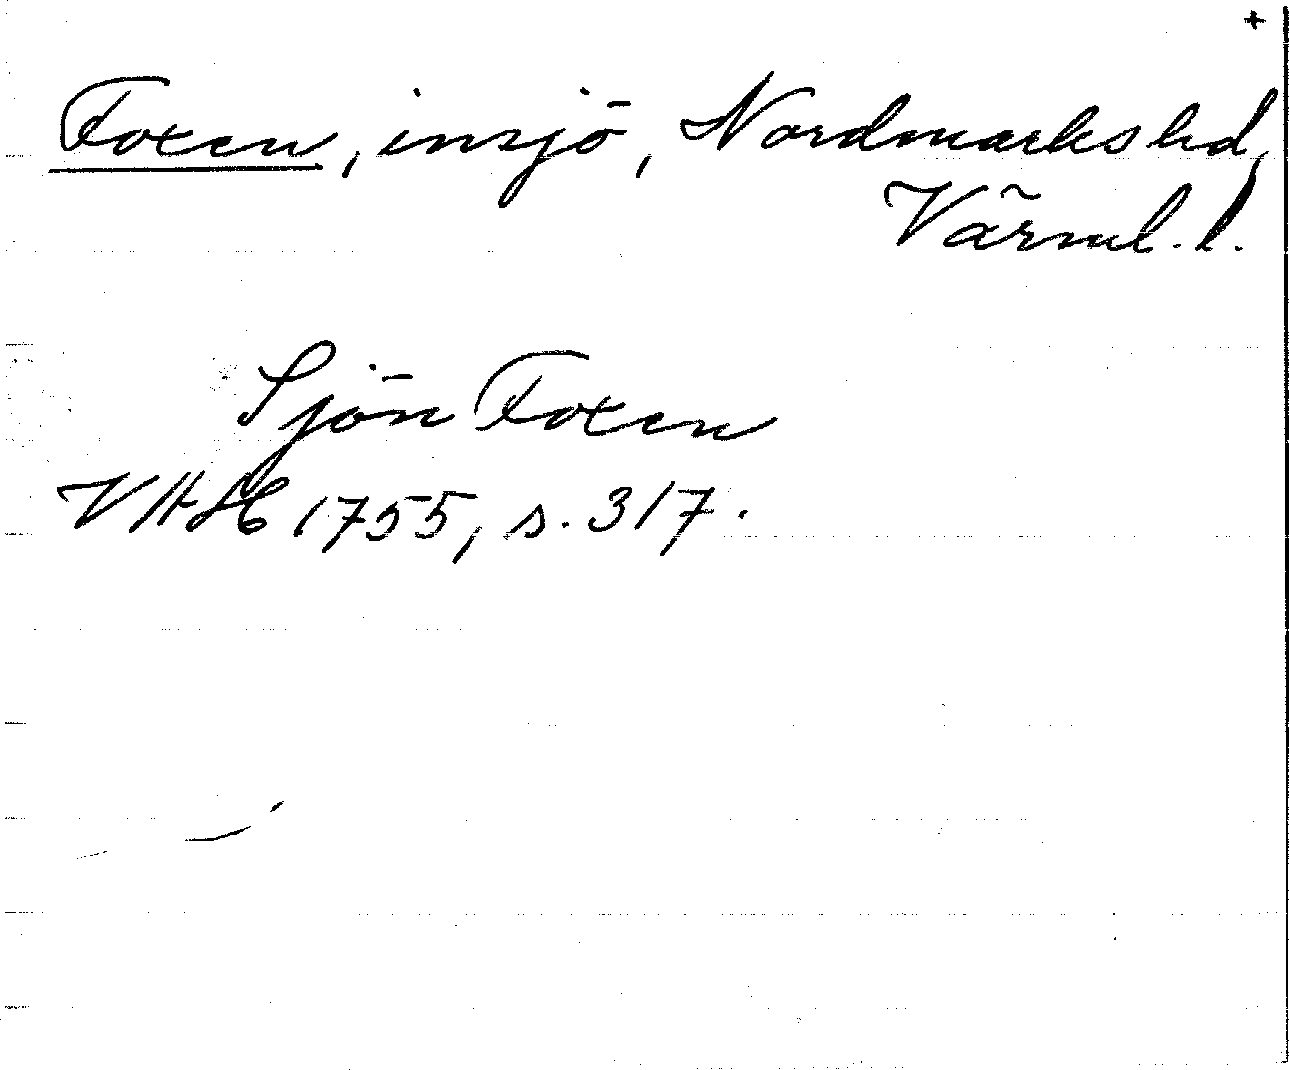 +
Foxen, insjö, Nordmarks hd,
Värml. l.
Sjön Foxen
VHAH 1755, s. 317.